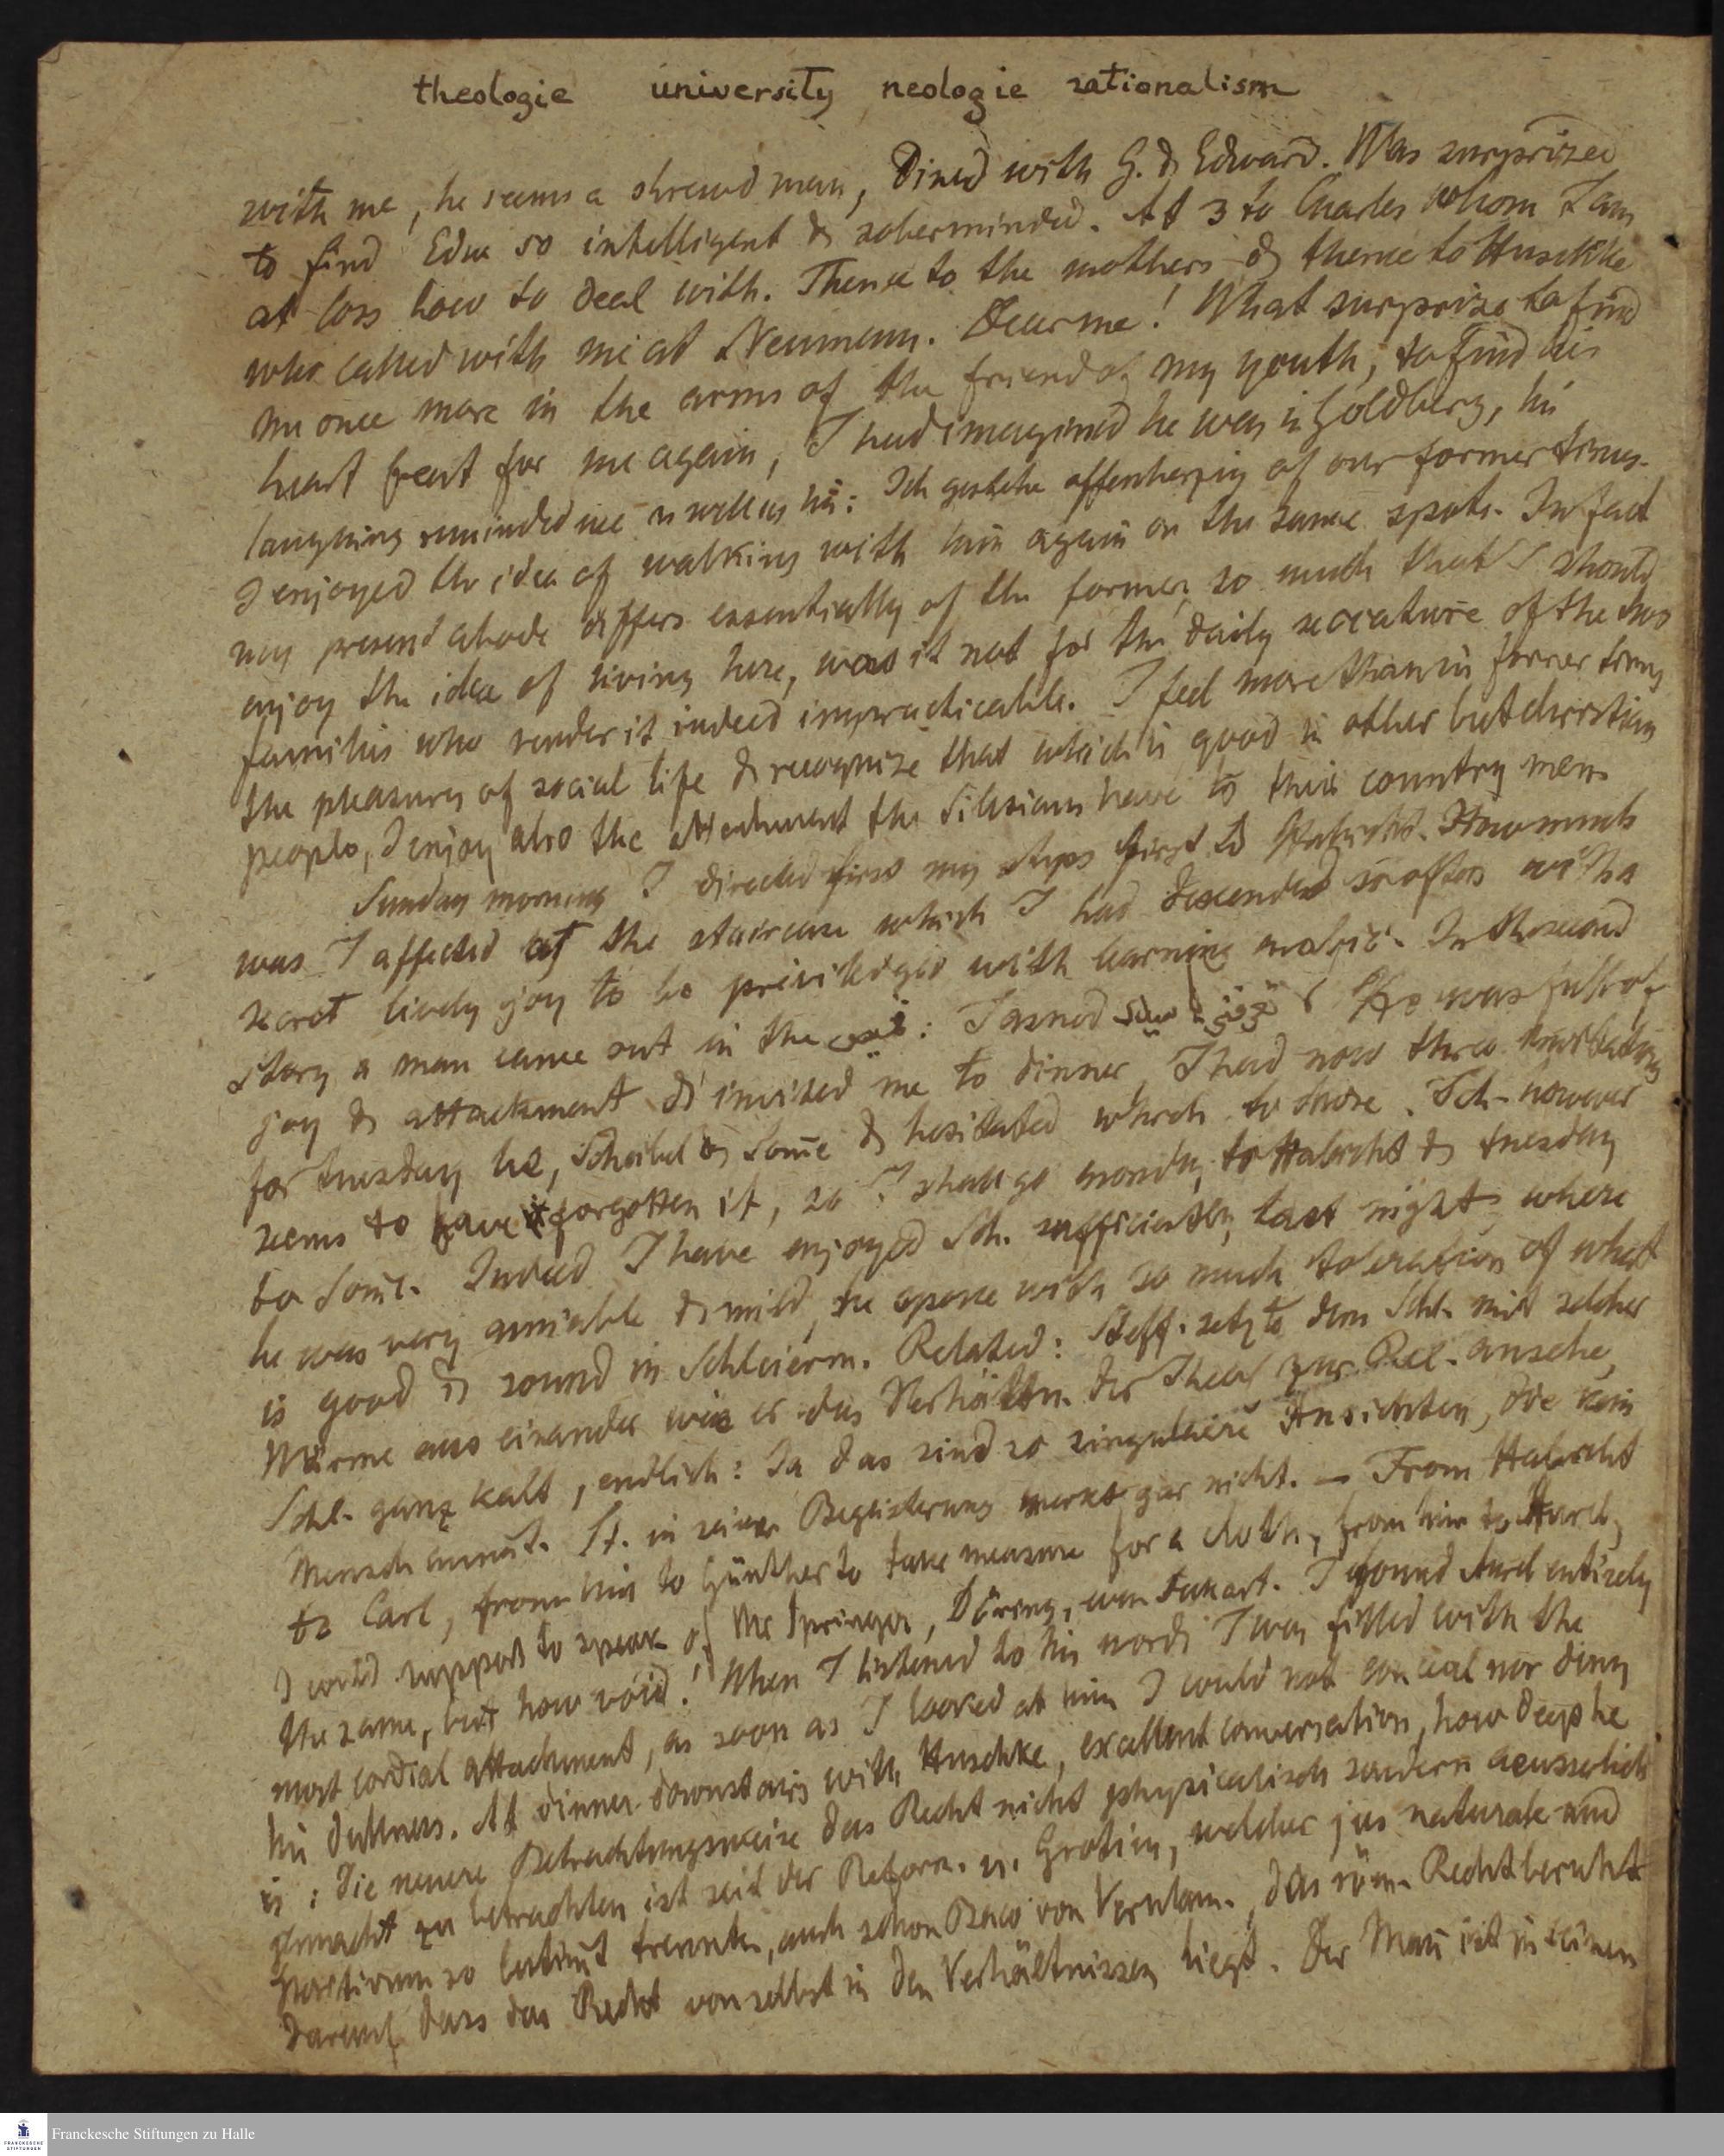 theologie university neologie rationalism
with me, he seems a shrewd man, Dined with G. & Edward. Was surprized
to find Edw so intelligent & soberminded. At 3 to Charles whom I am
at loss how to deal with. Thence to the mothers & thence to Huschke
who called with me at Neumann. Dear me! What surprize to find
me once more in the arms of the friend of my youth, to find his
heart beat for me again, I had imagined he was in Goldberg, his
laughing reminded me as well as his: Ich gestehe offenherzig of our former times.
I enjoyed the idea of walking with him again on the same spots. In fact
my present abode differs essentially of the former, so much that I should
enjoy the idea of living here, was it not for the daily seccature of the two
families who render it indeed impracticable. I feel more than in former times
the pleasures of social life & recognize that which is good in other but christian
people, I enjoy also the attachment the Silesians have to their country men.
Sunday morning I directed first my steps first to Habicht. How much
was I affected at the staircase which I had descended so often with a
secret lively joy to be priviledged with learning arabic. In the second
story a man came out in the : I asked He was full of
joy & attachment & invited me to dinner, I had now three invitations
for tuesday he, Scheibel & Some & hesitated which to chose. Sch. however
seems to have forgotten it, so I shall go monday to Habicht & tuesday
to Some. Indeed I have enjoyed Sch. sufficiently last night, where
he was very amiable & mild, he spoke with so much toleration of what
is good & sound in Schleierm. Related: Steff. setzte dem Schl. mit solcher
Wärme aus einander wie er das Verhältn. der Theol zur Rel. ansehe,
Schl. ganz kalt, endlich: Ja das sind so singulaire Ansichten, die kein
Mensch annimt. St. in seiner Begeisterung merkt gar nicht. — From Habicht
to Carl, from him to Günther to take measure for a cloth, from him to
I could support to speak of Mr Springer, Döring, I found entirely
the same, but how void! When I listened to his words I was filled with the
most cordial attachment, as soon as I looked at him I could not conceal nor deny
his dullness. At dinner downstairs with Huschke, excellent conversation, how deep he
is: Die neuere Betrachtungsweise das Recht nicht physicalisch sondern aeusserlich
gemacht zu betrachten ist seit der Reform. u. Grotius, welcher jus naturale und
positivum so bestimt trennte, auch schon Baco von Verulam. Das röm. Recht beruht
darauf dass das Recht von selbst in den Verhältnissen liegt. Der Mañ ist in seinen
Franckesche Stiftungen zu Halle